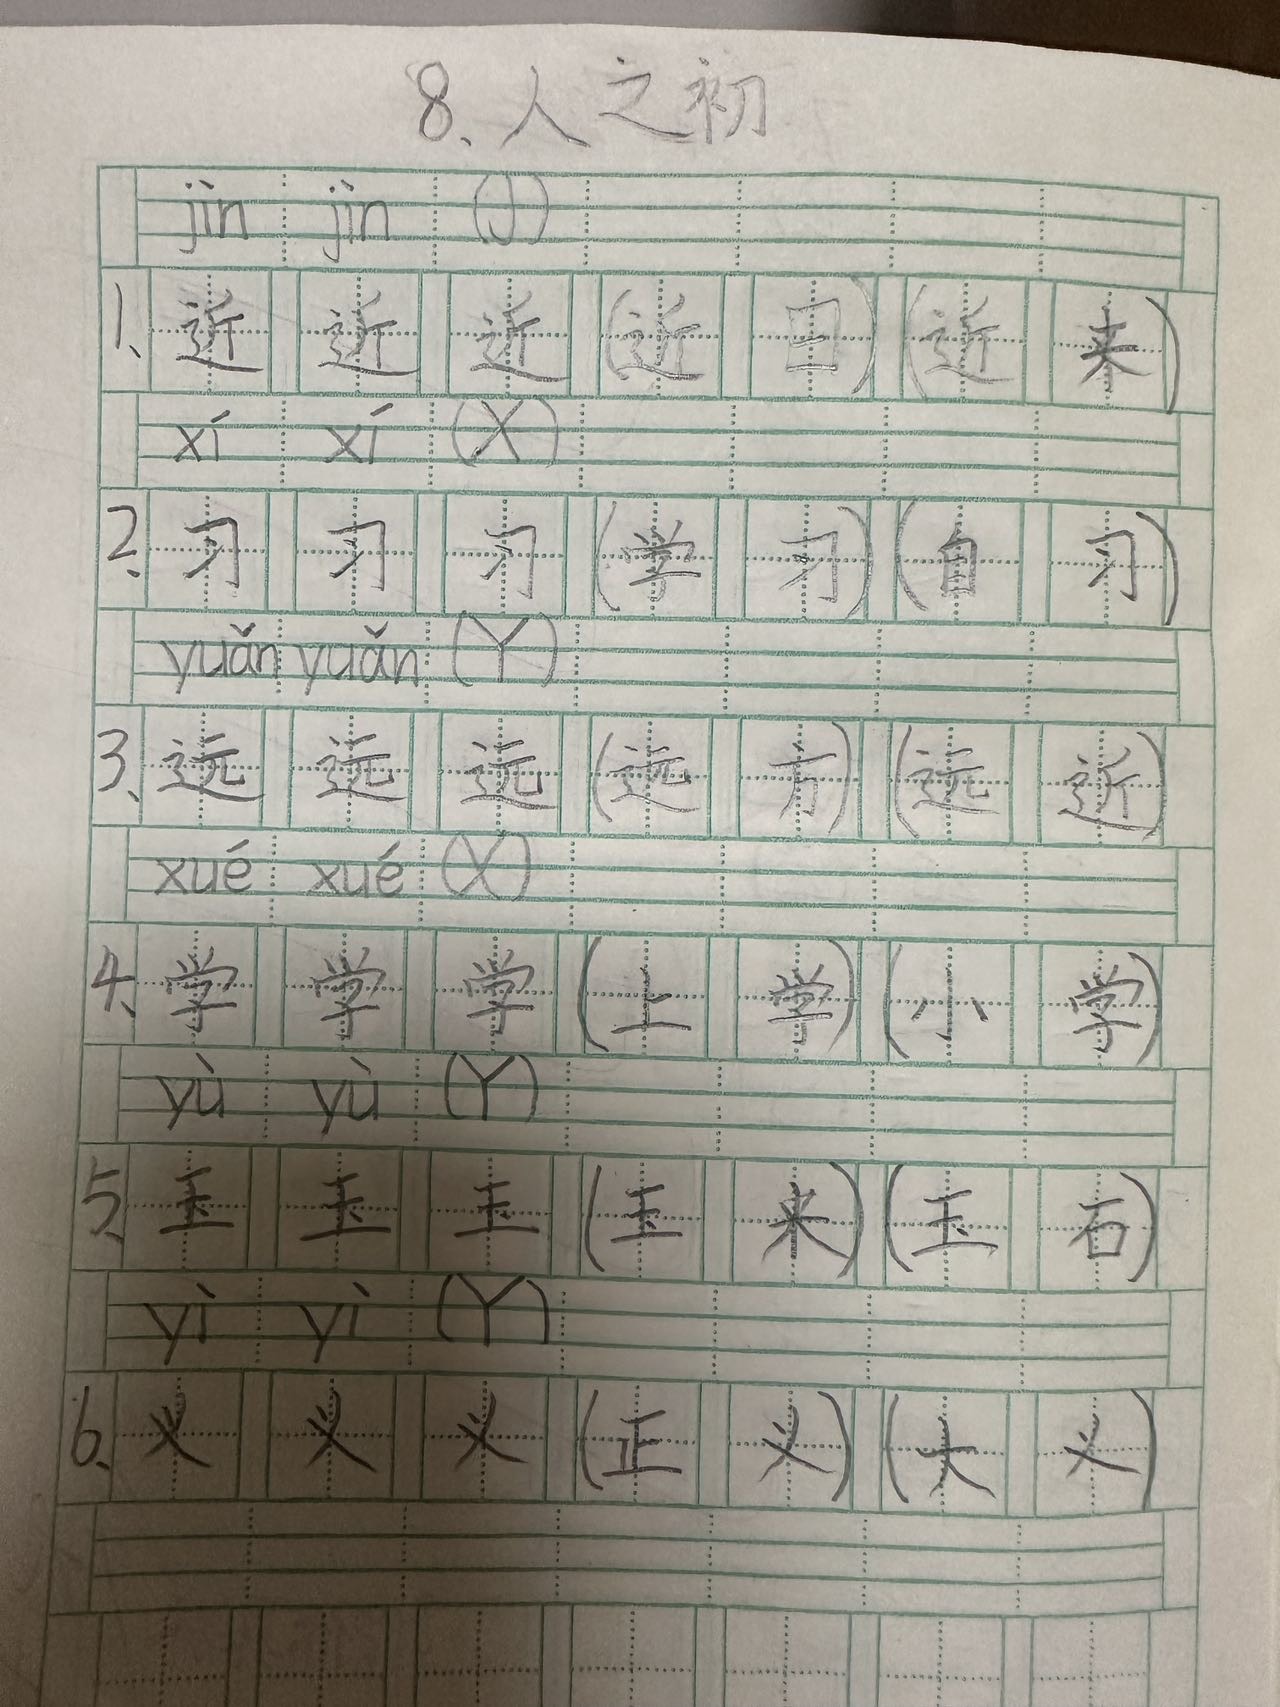 8、人之初
jìn jìn (J)
1、近 近 近 (近 日) (近 来)
xí xí (X)
2、习 习 习 (学 习) (自 习)
yuǎn yuǎn (Y)
3、远 远 远 (远 方) (远 近)
xué xué (X)
4、学 学 学 (上 学) (小 学)
yù yù (Y)
5、玉 玉 玉 (玉 米) (玉 石)
yì yì (Y)
6、义 义 义 (正 义) (大 义)